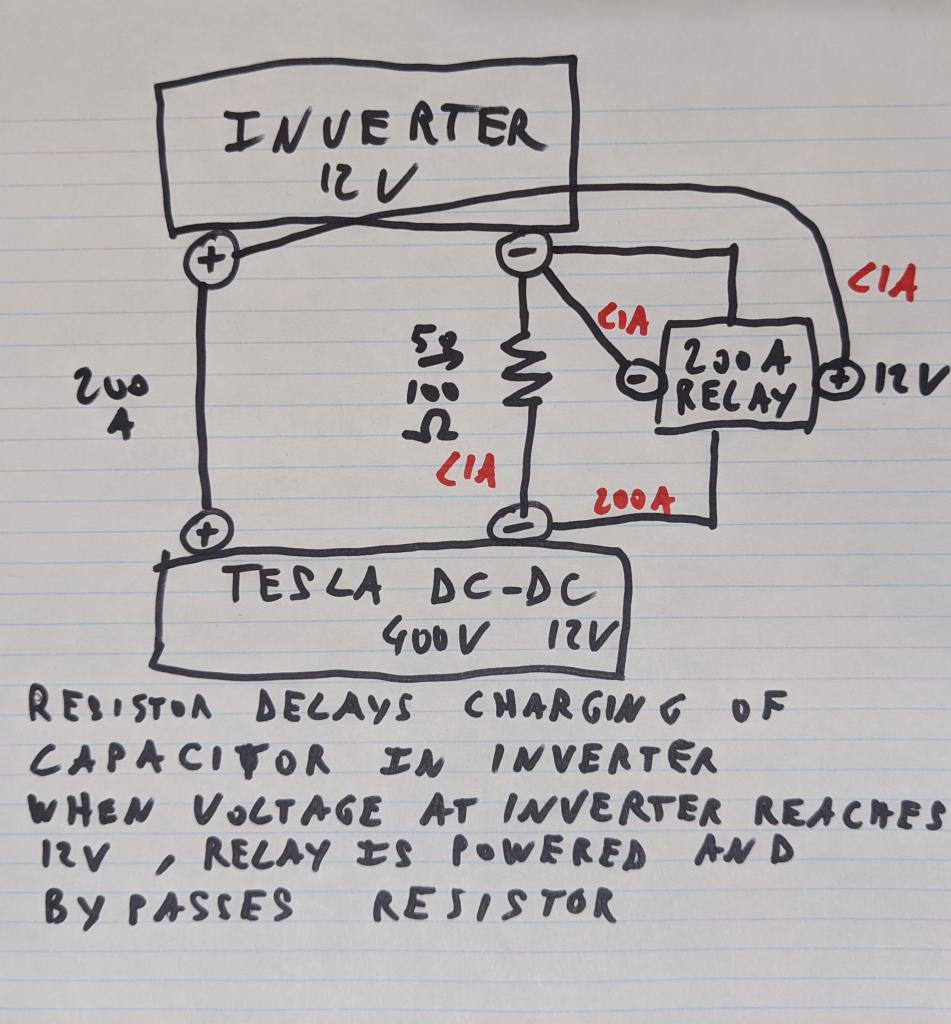 INVERTER
12V
+
-
<1A
<1A
200 A
RELAY
-
+ 12V
200
A
100
Ω
<1A
200A
+
-
TESLA DC-DC
400V 12V
RESISTOR DELAYS CHARGING OF
CAPACITOR IN INVERTER
WHEN VOLTAGE AT INVERTER REACHES
12V , RELAY IS POWERED AND
BYPASSES RESISTOR